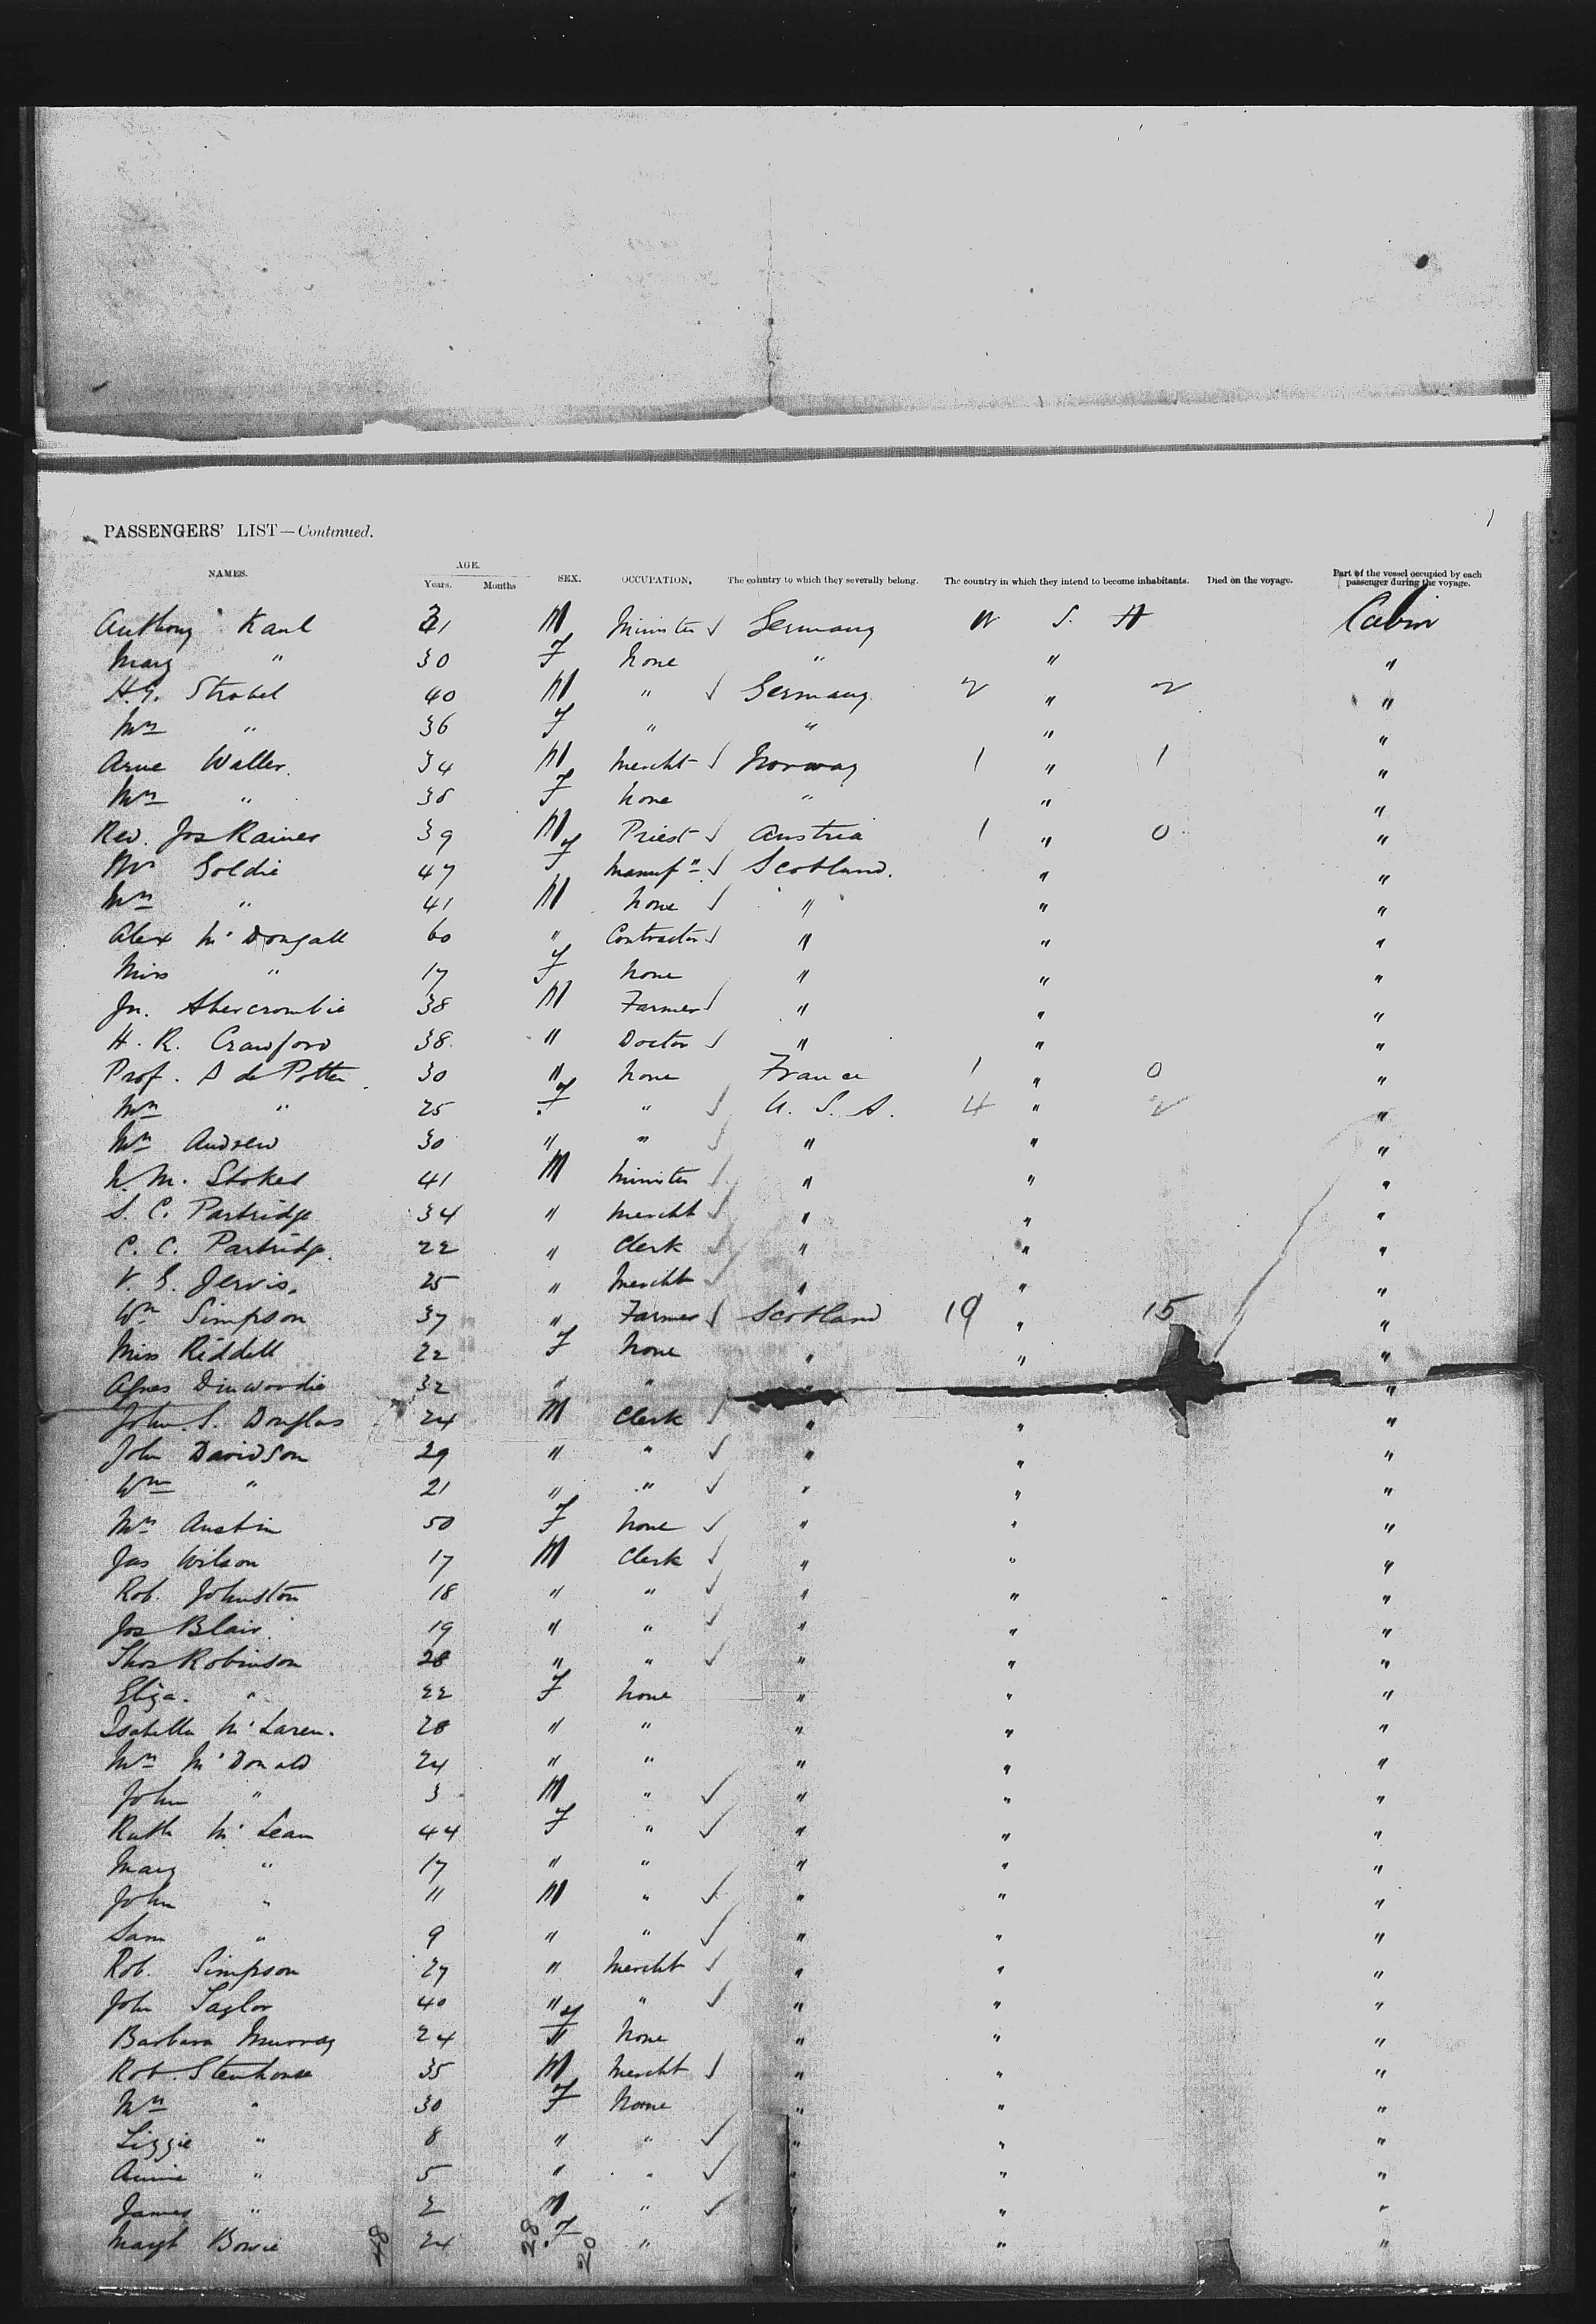 PASSENGERS' LIST—Continued.
NAMES. AGE. Years. Months SEX. OCCUPATION, The country to which they severally belong. The country in which they intend to become inhabitants. Died on the voyage. Part of the vessel occupied by each passenger during the voyage.
Anthony Kaul 31 M Minister Germany U S. A Cabin
Mary " 30 F None " " "
H.G. Strobel 40 M " Germany 2 " 2 "
Mrs " 36 F " " " "
Arne Waller. 34 M Mercht Norway 1 " 1 "
Mrs " 38 F None " " "
Rev. Jos Rainer 39 M Priest Austria 1 " 0 "
Mr Goldie 47 F Manufr. Scotland. " "
Mrs " 41 M None " " "
Alex McDougall 60 " Contractor " " "
Miss " 17 F None " " "
Jn. Abercrombie 38 M Farmer " " "
H. R. Crawford 38. " Doctor " " "
Prof. A de Potter 30 " None France 1 " 0 "
Mrs " 25 F " U. S. A. 4 " 2 "
Mrs Andrew 30 " " " " "
W. M. Stokes 41 M Minister " " "
S. C. Partridge 34 " Mercht " " "
C. C. Partridge. 22 " Clerk " " "
V. G. Jervis. 25 " Mercht " " "
Wm Simpson 37 " Farmer Scotland 19 " 15 "
Miss Riddell 22 F None " " "
Agnes Dinwoodie 32 " " " "
John S. Douglas 24 M Clerk " " "
John Davidson 29 " " " " "
Wm " 21 " " " " "
Mrs Austin 50 F None " " "
Jas Wilson 17 M Clerk " " "
Rob. Johnston 18 " " " " "
Jos Blair. 19 " " " " "
Thos Robinson 28 " " " " "
Eliza. " 22 F None " " "
Isabella McLaren. 28 " " " " "
Mrs McDonald 24 " " " " "
John " 3 M " " " "
Ruth McLean 44 F " " " "
Mary " 17 " " " " "
John " 11 M " " " "
Sam " 9 " " " " "
Rob. Simpson 27 " Mercht " " "
John Taylor 40 " " " " "
Barbara Murray 24 F None " " "
Rob. Stenhouse 35 M Mercht " " "
Mrs " 30 F None " " "
Lizzie " 8 " " " " "
Annie " 5 " " " " "
James " 2 M " " " "
Margt Bowie 24 F " " " "
48 28 20